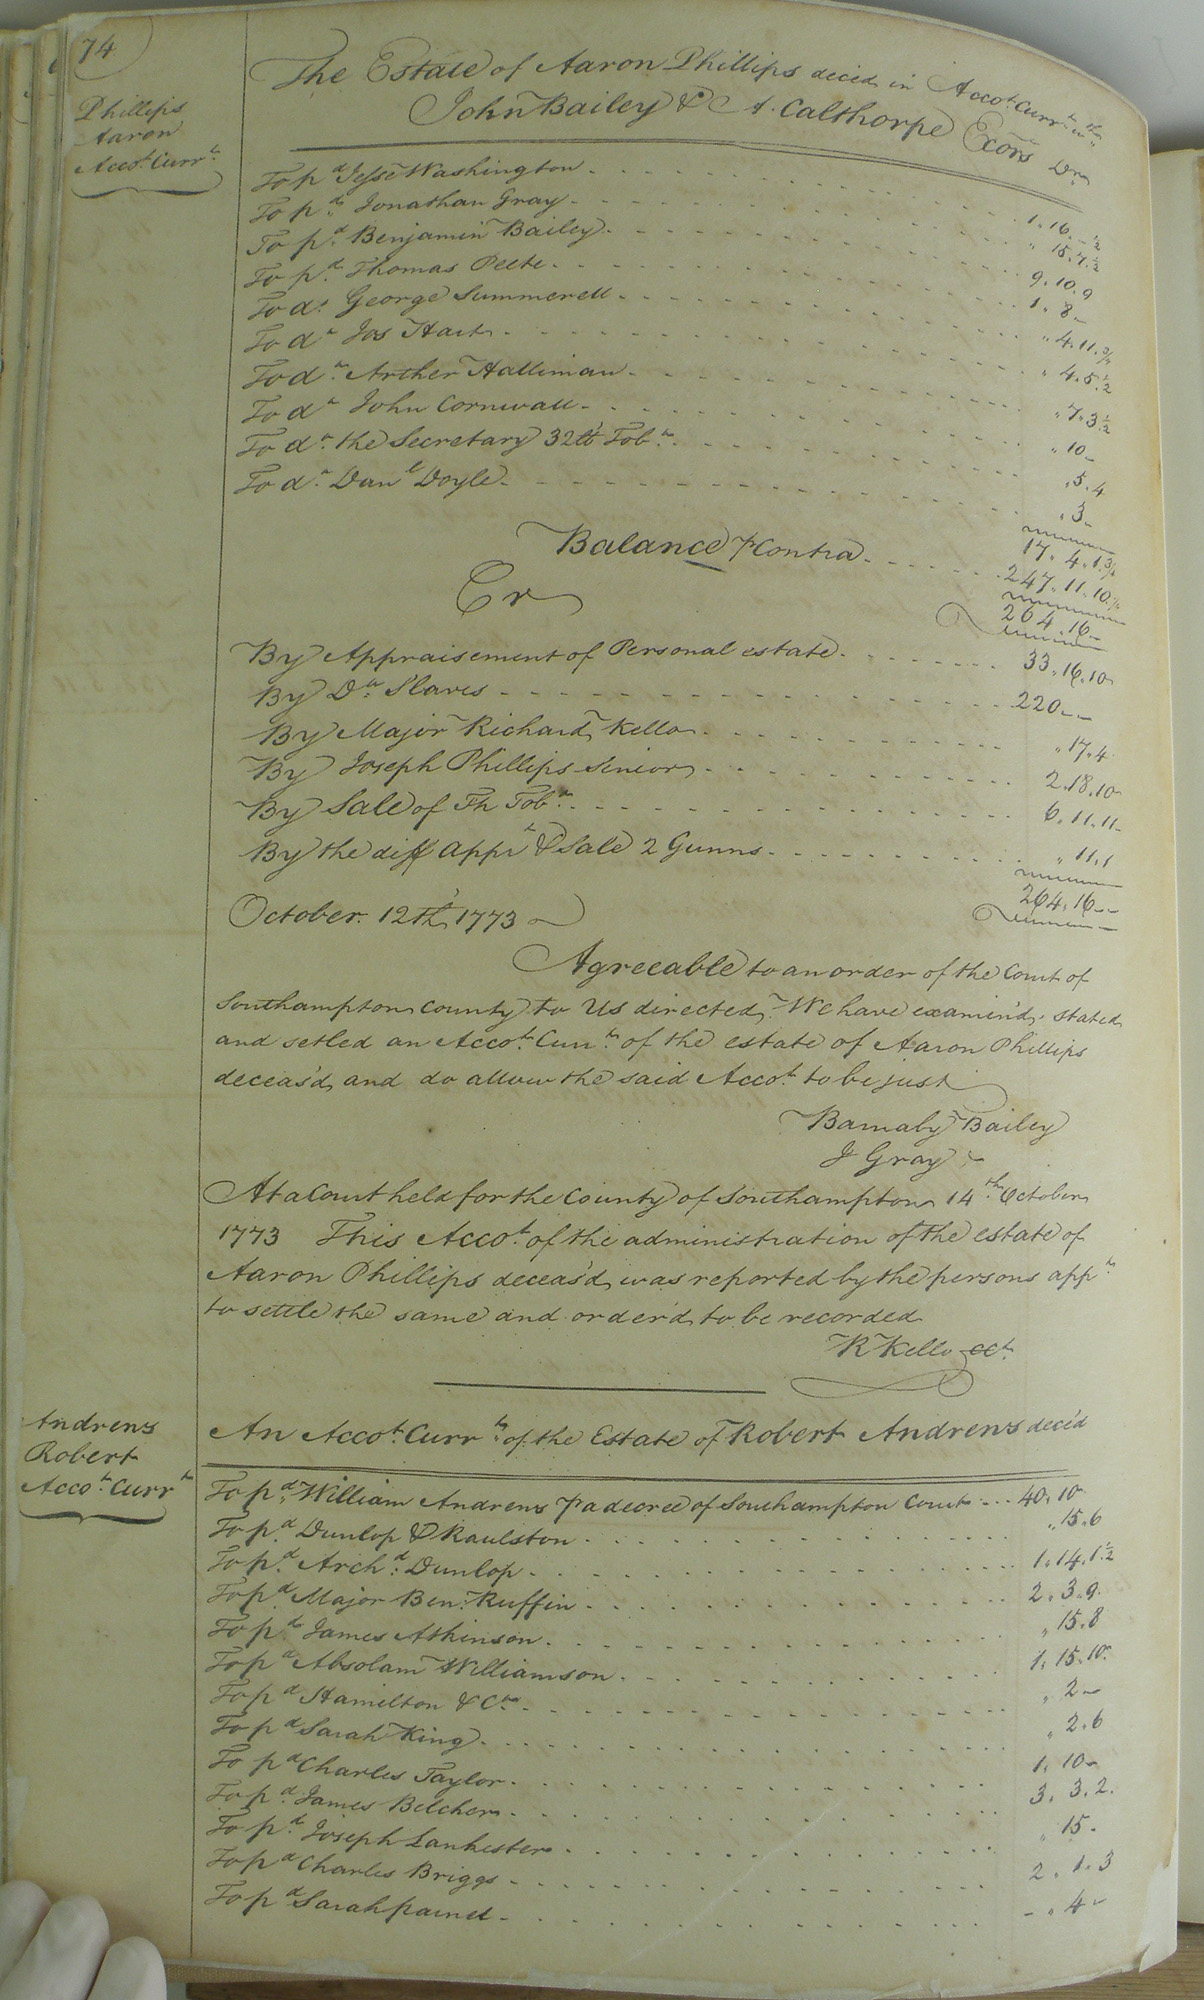 74
Phillips
Aaron
Acco.t Curr.t
The Estate of Aaron Phillips decied in Acco.t Curr.t
John Bailey & A. Calthorpe Exors Dr
To p.d Jesse Washington 1.16
To p.d Jonathan Gray " 15.7 1/2
To p.d Benjamin Bailey 9.10.9
To p.d Thomas Peete 1.8.-
To d.o George Summerell " 4.11 3/4
To d.o Jos Hart " 4.5 1/2
To d.o Arther Halliman " 7.3 1/2
To d.o John Cornwall " 10.-
To d.o the Secretary 32lb Tob.o " 5.4
To d.o Dan.l Doyle " 3.-
Balance P Contra 17.4.1 3/4
247.11.10 1/4
264.16.-
Cr
By Appraisement of Personal estate 33.16.10
By D.o Slaves 220.-.-
By Major Richard Kello " 17.4
By Joseph Phillips Senior 2.18.10
By Sale of Th Tob.o 6.11.11
By the diff app.t & Sale 2 Gunns " 11.1
264.16.-
October 12th 1773
Agreeable to an order of the Court of
Southampton County to Us directed, We have examin'd, stated
and setled an Acco.t Curr.t of the estate of Aaron Phillips
deceas'd, and do allow the said Acco.t to be just
Barnaby Bailey
J Gray
At a Court held for the County of Southampton 14.th October
1773 This Acco.t of the administration of the estate of
Aaron Phillips deceas'd was reported by the persons app.t
to settle the same and order'd to be recorded
R Kello CCt.
Andrews
Robert
Acco.t Curr.t
An Acco.t Curr.t of the Estate of Robert Andrews dece'd
To p.d William Andrews P a decree of Southampton Court 40.10
To p.d Dunlop & Raulston " 15.6
To p.d Arch.d Dunlop 1.14.1 1/2
To p.d Major Ben: Ruffin 2.3.9
To p.d James Atkinson " 15.8
To p.d Absolam Williamson 1.15.10
To p.d Hamilton & C.o " 2.-
To p.d Sarah King " 2.6
To p.d Charles Taylor 1.10.-
To p.d James Belcher 3.3.2
To p.d Joseph Lankester " 15.-
To p.d Charles Briggs 2.1.3
To p.d Sarah parnel - " 4.-